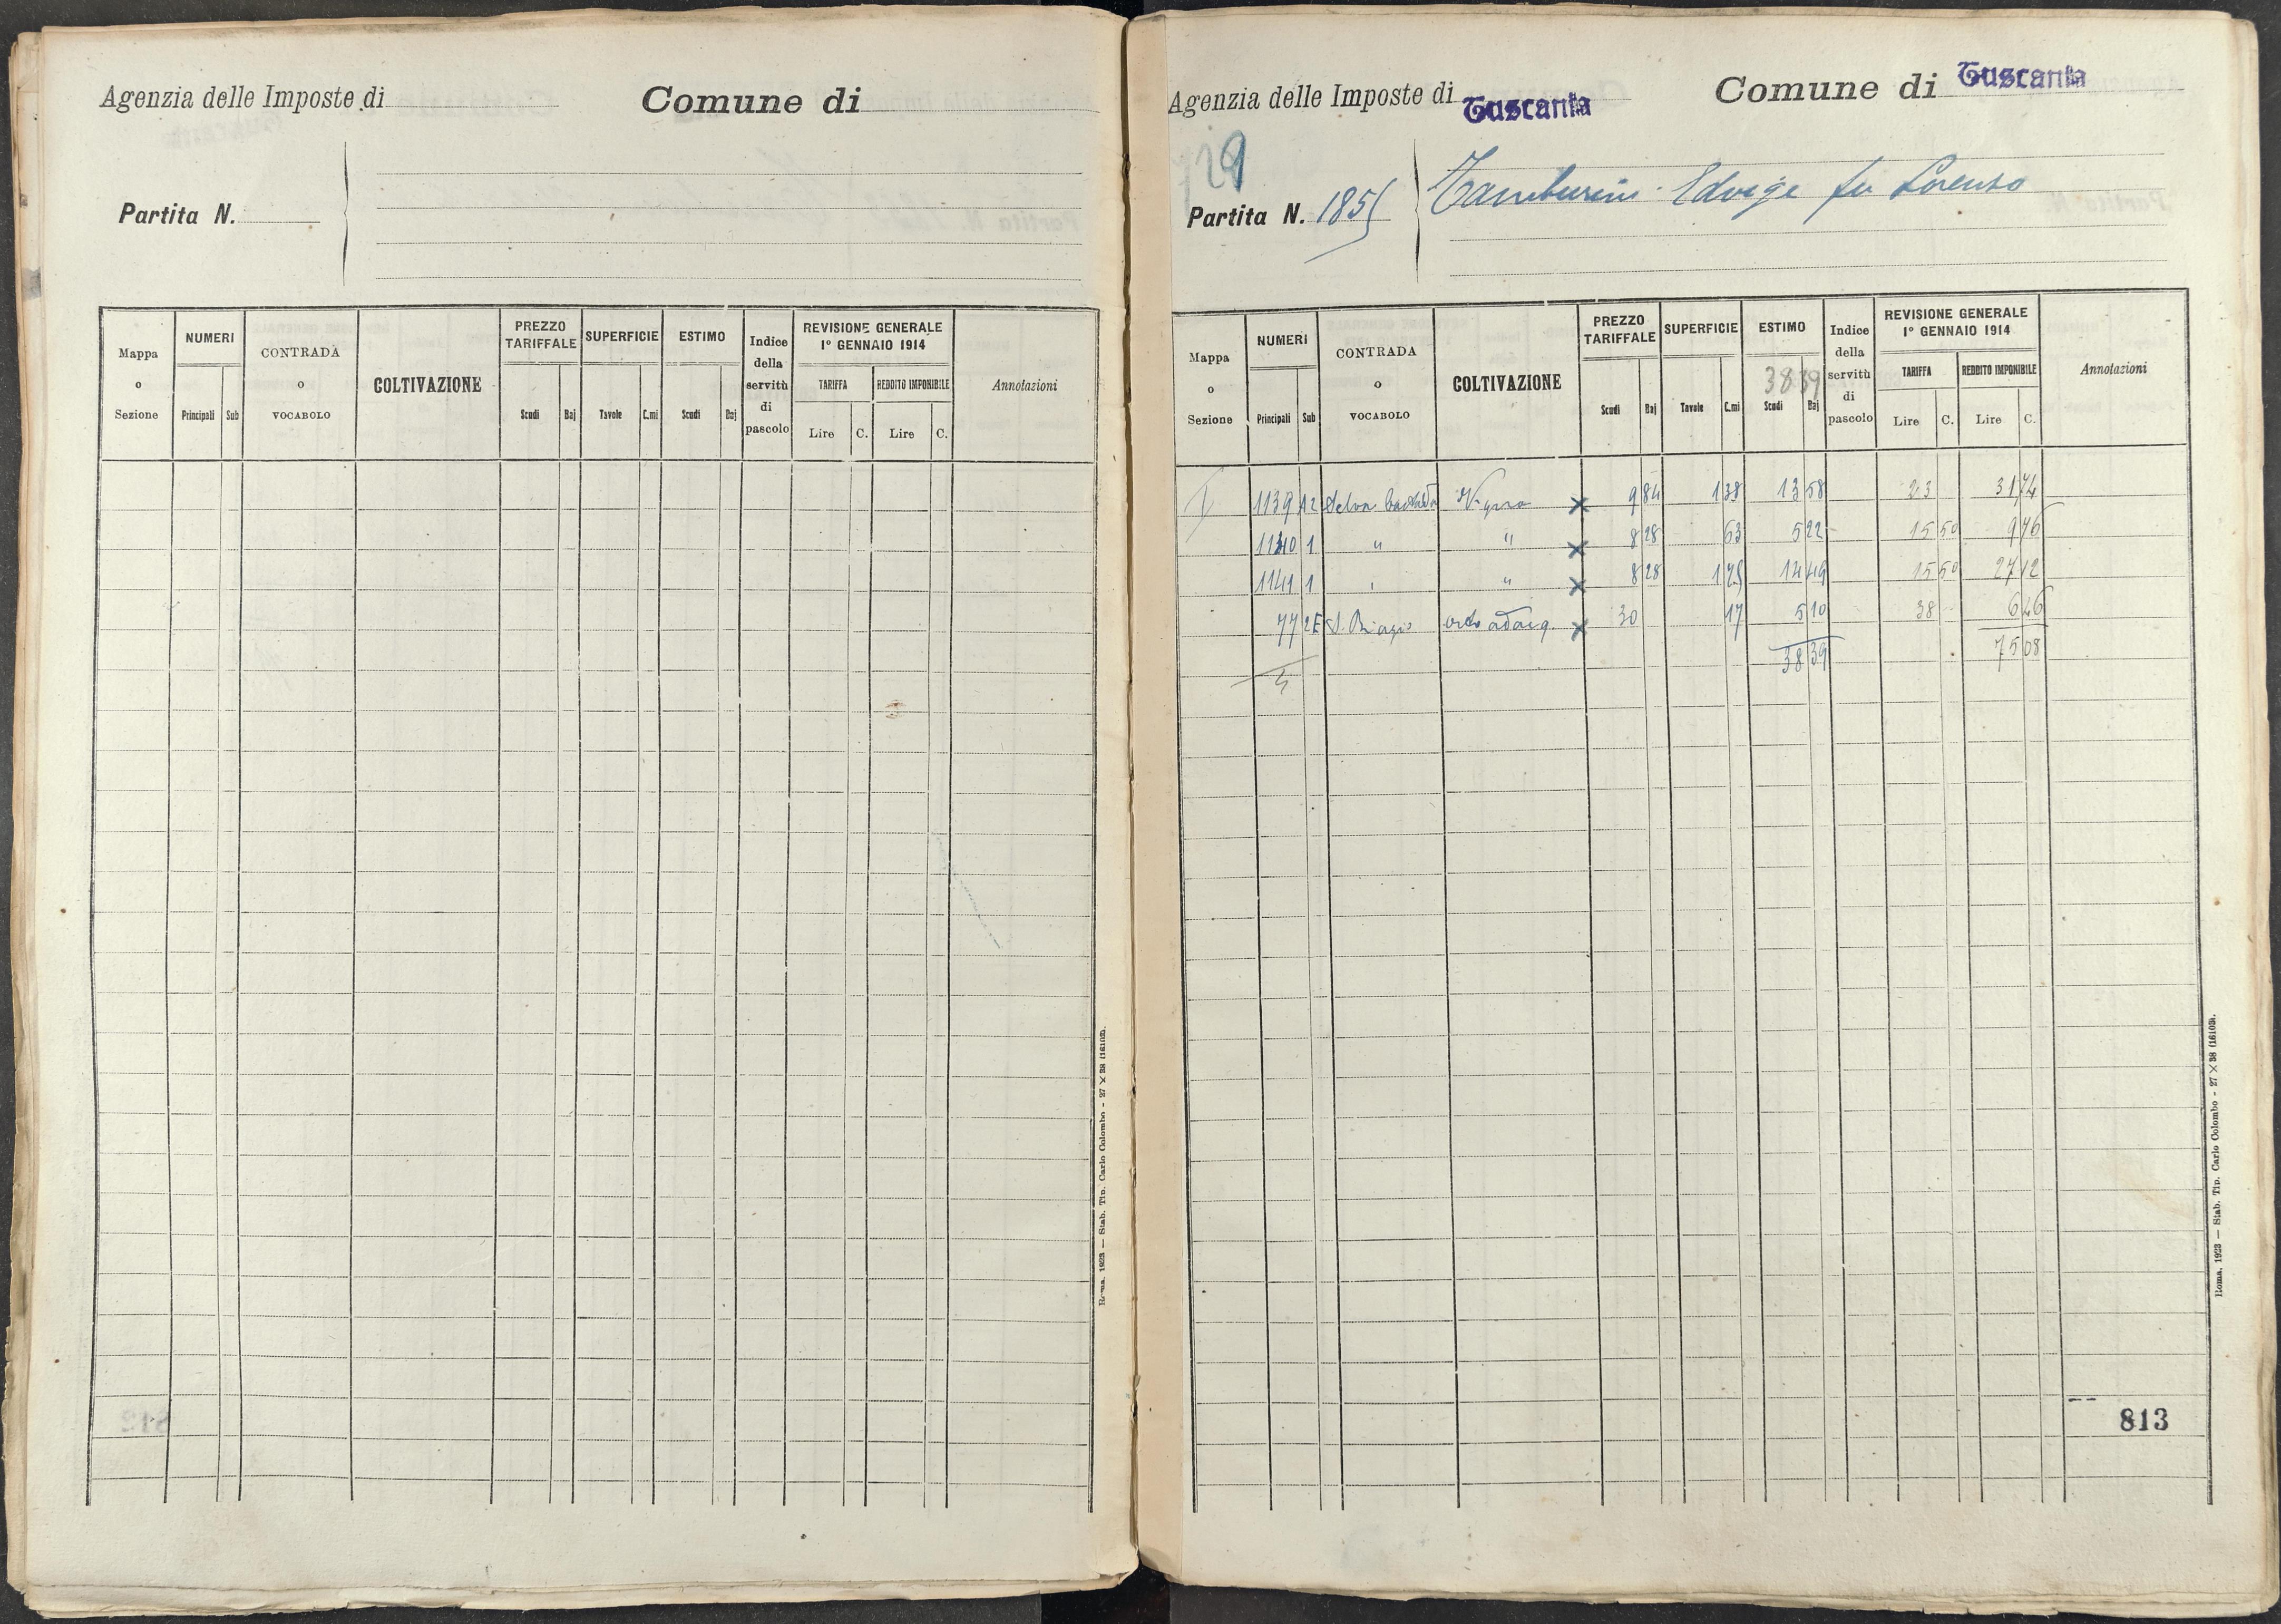 Agenzia delle Imposte di
Comune di
Partita N.
Mappa o Sezione
NUMERI
Principali Sub
CONTRADA o VOCABOLO
COLTIVAZIONE
PREZZO TARIFFALE
Scudi Baj
SUPERFICIE
Tavole C.mi
ESTIMO
Scudi Baj
Indice della servitù di pascolo
REVISIONE GENERALE
1° GENNAIO 1914
TARIFFA REDDITO IMPONIBILE
Lire C. Lire C.
Annotazioni
Roma, 1923 — Stab. Tip. Carlo Colombo - 27 X 38 (16103).
Agenzia delle Imposte di Tuscania
Comune di Tuscania
Partita N. 1855
Tamburini Edvige fu Lorenzo
Mappa o Sezione
NUMERI
Principali Sub
CONTRADA o VOCABOLO
COLTIVAZIONE
PREZZO TARIFFALE
Scudi Baj
SUPERFICIE
Tavole C.mi
ESTIMO
3839
Scudi Baj
Indice della servitù di pascolo
REVISIONE GENERALE
1° GENNAIO 1914
TARIFFA REDDITO IMPONIBILE
Lire C. Lire C.
Annotazioni
1139 A2 Selva Vigna x 9 84 1 38 13 58 23 31 74
1140 1 " " x 8 28 63 5 22 15 50 9 76
1141 1 " " x 8 28 1 75 14 49 15 50 27 12
77 2E S. Biagio orto adacq. x 30 17 5 10 38 - 6 46
38 39 75 08
813
Roma, 1923 — Stab. Tip. Carlo Colombo - 27 X 38 (16103).